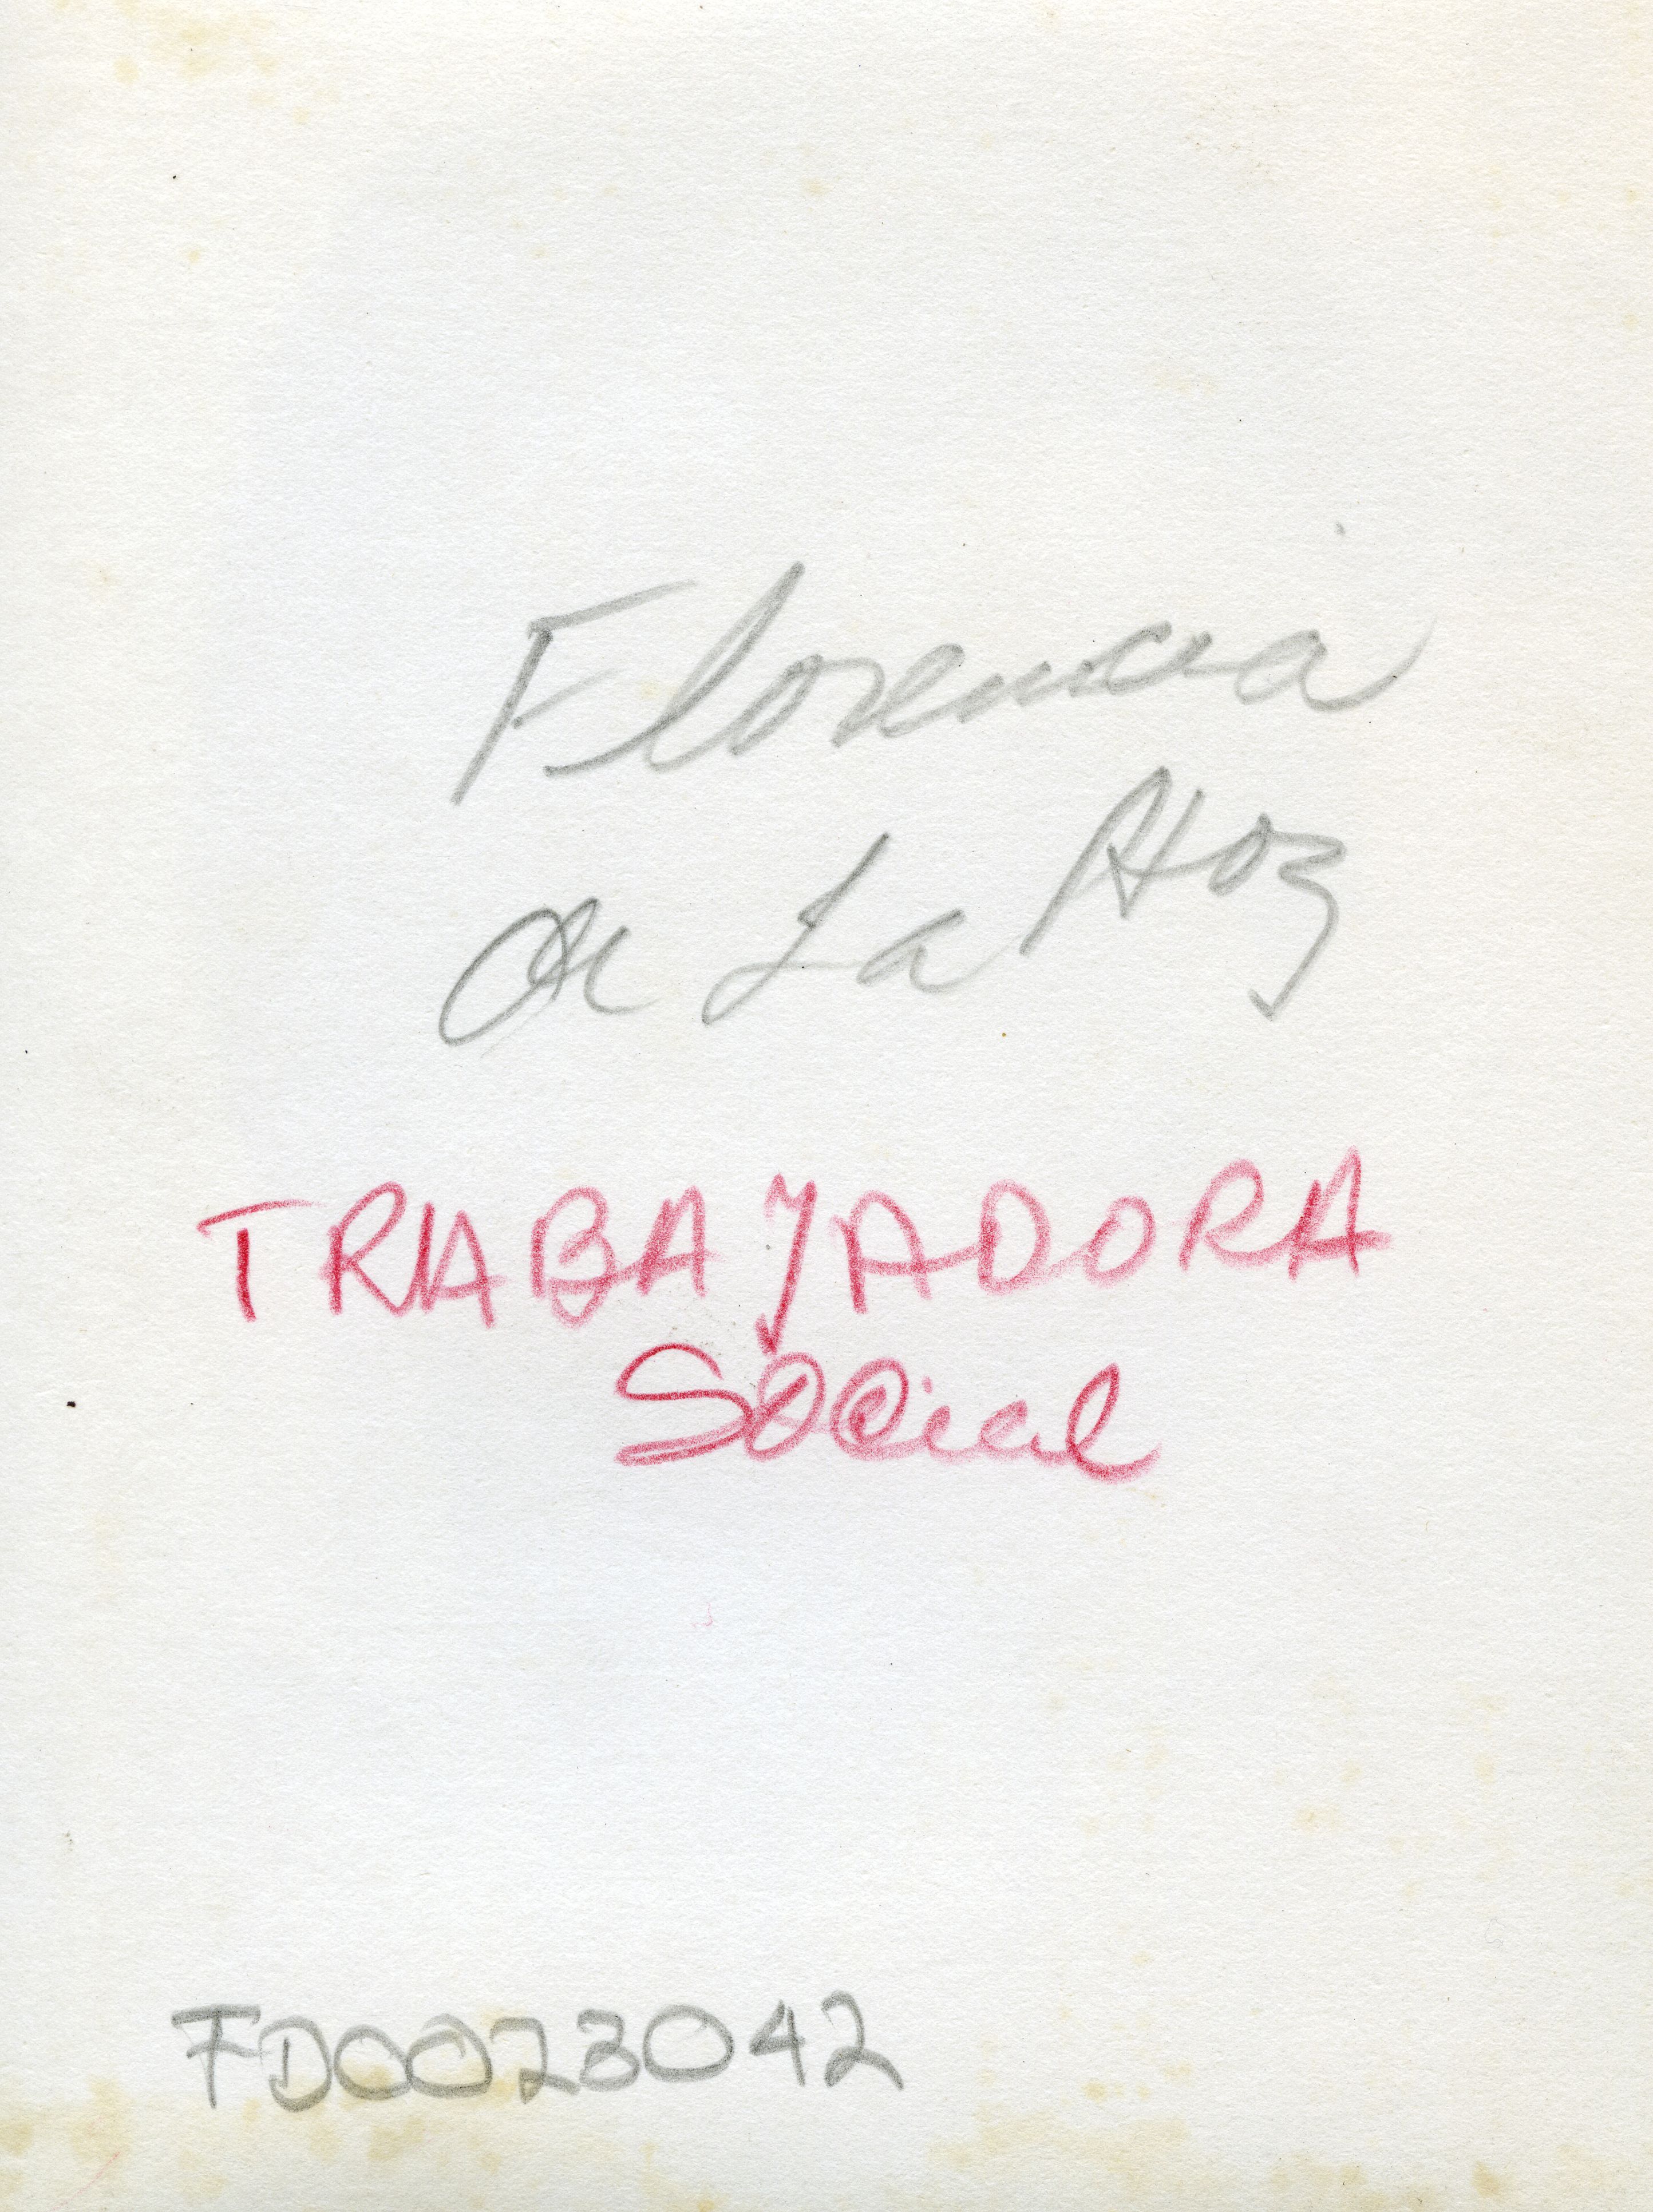 Florencia
de La Hoz
TRABAJADORA
Social
FD0023042